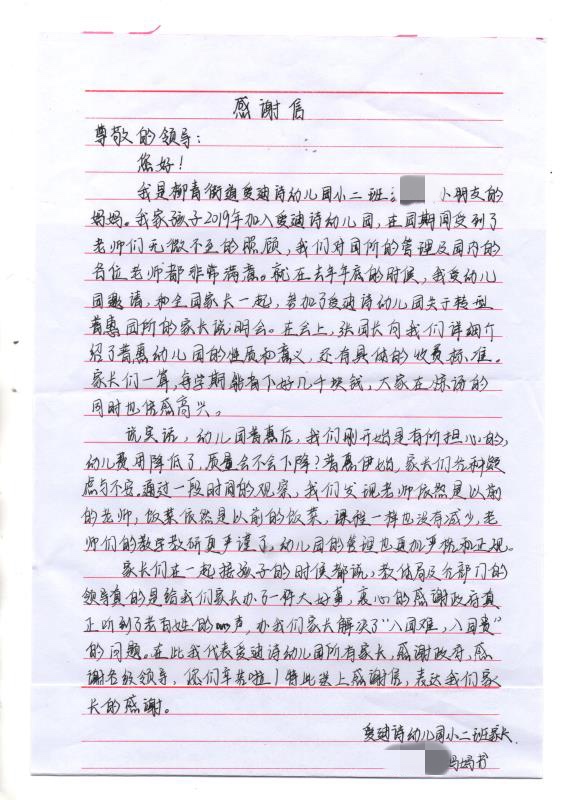 感谢信
尊敬的领导：
您好！
我是柳青街道爱迪诗幼儿园小二班 小朋友的
妈妈。我家孩子2019年加入爱迪诗幼儿园，在园期间受到了
老师们无微不至的照顾，我们对园所的管理及园内的
各位老师都非常满意。就在去年年底的时候，我受幼儿
园邀请，和全园家长一起，参加了爱迪诗幼儿园关于转型
普惠园所的家长说明会。在会上，张园长向我们详细介
绍了普惠幼儿园的性质和意义，还有具体的收费标准。
家长们一算，每学期能省下好几千块钱，大家在惊讶的
同时也倍感高兴。
说实话，幼儿园普惠后，我们刚开始是有所担心的，
幼儿费用降低了，质量会不会下降？普惠伊始，家长们各种疑
虑与不安。通过一段时间的观察，我们发现老师依然是以前
的老师，饭菜依然是以前的饭菜，课程一样也没有减少，老
师们的教学教研更严谨了，幼儿园的管理也更加严格和正规。
家长们在一起接孩子的时候都说，教体局及各部门的
领导真的是给我们家长办了一件大好事，衷心的感谢政府真
正听到了老百姓的心声，办我们家长解决了“入园难，入园贵”
的问题。在此我代表爱迪诗幼儿园所有家长，感谢政府，感
谢各级领导，您们辛苦啦！特此送上感谢信，表达我们家
长的感谢。
爱迪诗幼儿园小二班家长
妈妈书